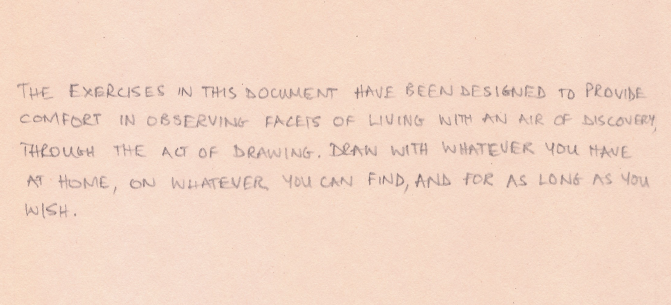 THE EXERCISES IN THIS DOCUMENT HAVE BEEN DESIGNED TO PROVIDE
COMFORT IN OBSERVING FACETS OF LIVING WITH AN AIR OF DISCOVERY,
THROUGH THE ACT OF DRAWING. DRAW WITH WHATEVER YOU HAVE
AT HOME, ON WHATEVER YOU CAN FIND, AND FOR AS LONG AS YOU
WISH.